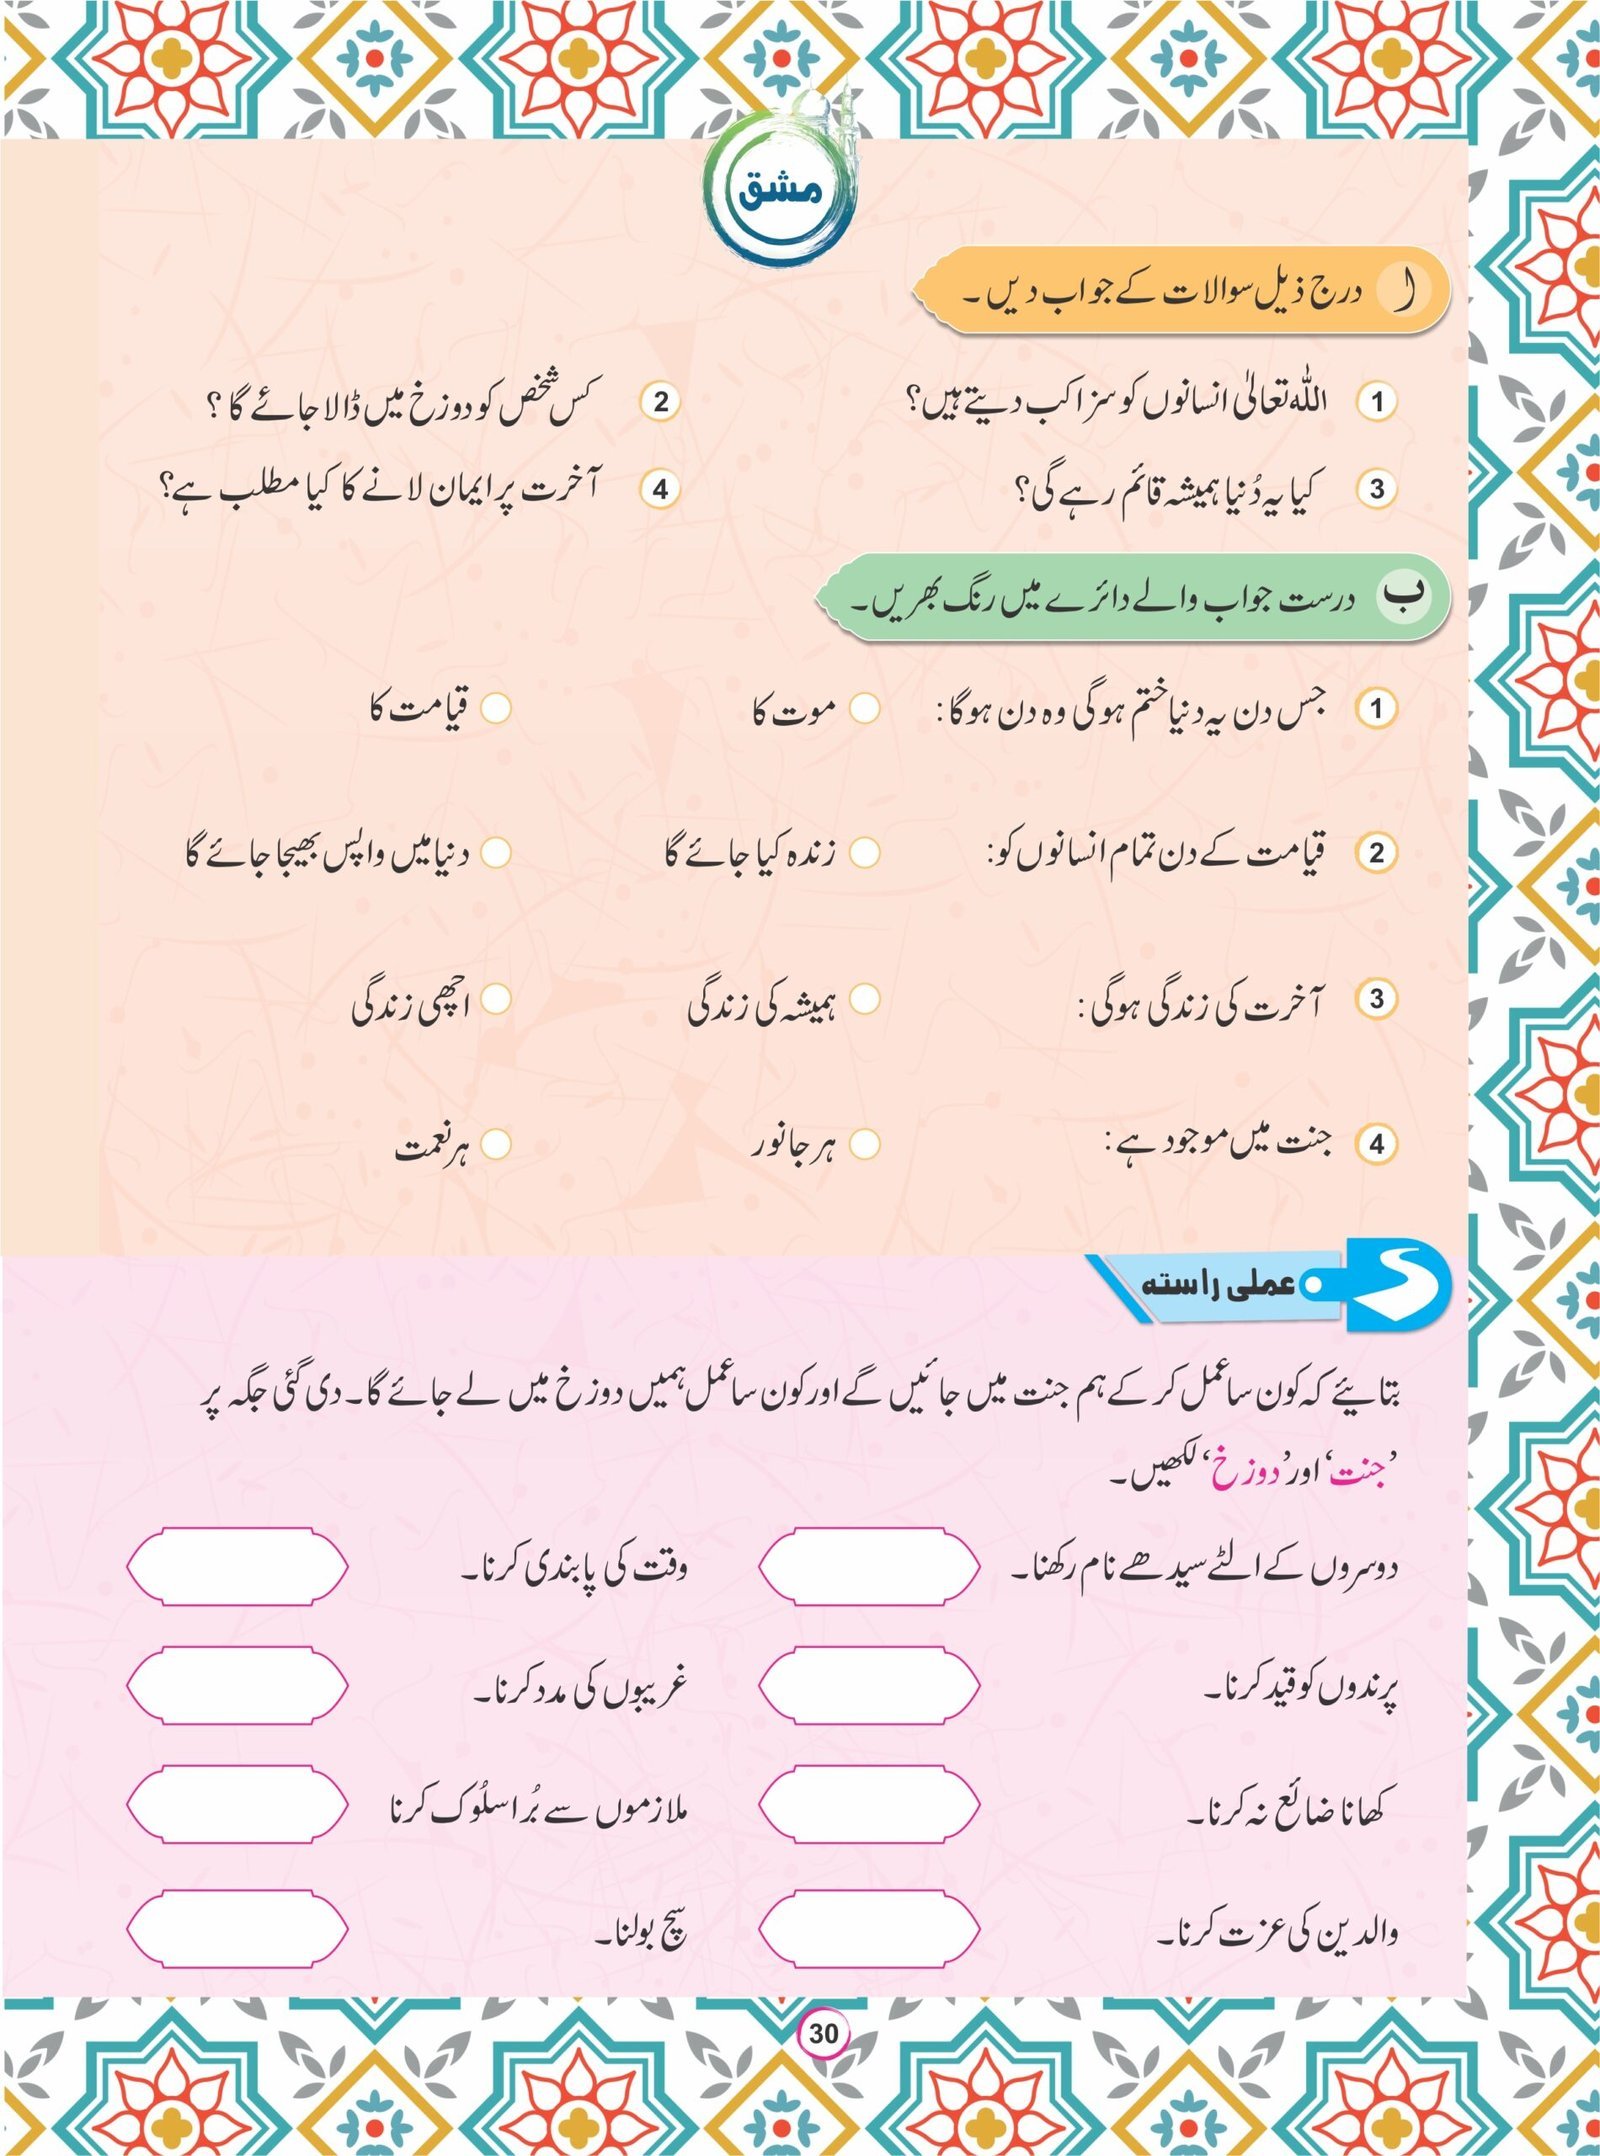 مشق
ا درج ذیل سوالات کے جواب دیں۔
1 اللہ تعالیٰ انسانوں کو سزا کب دیتے ہیں؟
2 کس شخص کو دوزخ میں ڈالا جائے گا ؟
3 کیا یہ دُنیا ہمیشہ قائم رہے گی؟
4 آخرت پر ایمان لانے کا کیا مطلب ہے؟
ب درست جواب والے دائرے میں رنگ بھریں۔
1 جس دن یہ دنیا ختم ہوگی وہ دن ہوگا: موت کا قیامت کا
2 قیامت کے دن تمام انسانوں کو: زندہ کیا جائے گا دنیا میں واپس بھیجا جائے گا
3 آخرت کی زندگی ہوگی: ہمیشہ کی زندگی اچھی زندگی
4 جنت میں موجود ہے: ہر جانور ہر نعمت
عملی راستہ
بتایئے کہ کون سا عمل کر کے ہم جنت میں جائیں گے اور کون سا عمل ہمیں دوزخ میں لے جائے گا۔ دی گئی جگہ پر
’جنت‘ اور ’دوزخ‘ لکھیں۔
دوسروں کے الٹے سیدھے نام رکھنا۔ وقت کی پابندی کرنا۔
پرندوں کو قید کرنا۔ غریبوں کی مدد کرنا۔
کھانا ضائع نہ کرنا۔ ملازموں سے بُرا سلُوک کرنا
والدین کی عزت کرنا۔ سچ بولنا۔
30